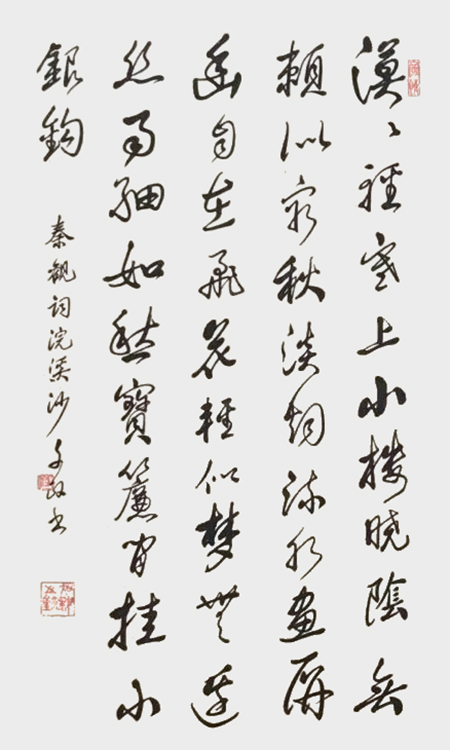 漠〻輕寒上小樓曉陰無
賴似窮秋淡烟流水畫屏
幽自在飛花輕似夢無邊
絲雨細如愁寶簾閒挂小
銀鈎
秦觀詞浣溪沙 文